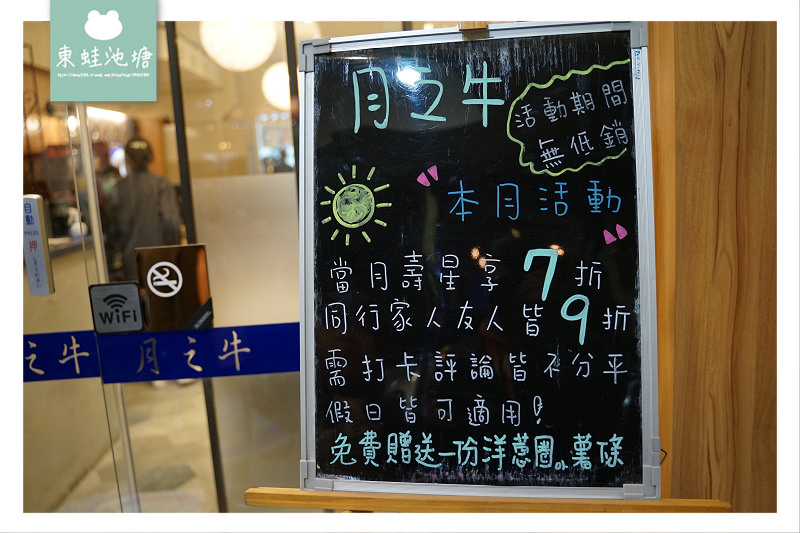 東蛙池塘
月之牛
活動期間
無低銷
"本月活動"
當月壽星享7折
同行家人友人皆9折
需打卡評論皆不分平
假日皆可適用!
免費贈送一份洋蔥圈or薯條
自動
押
WiFi
之牛
月之牛